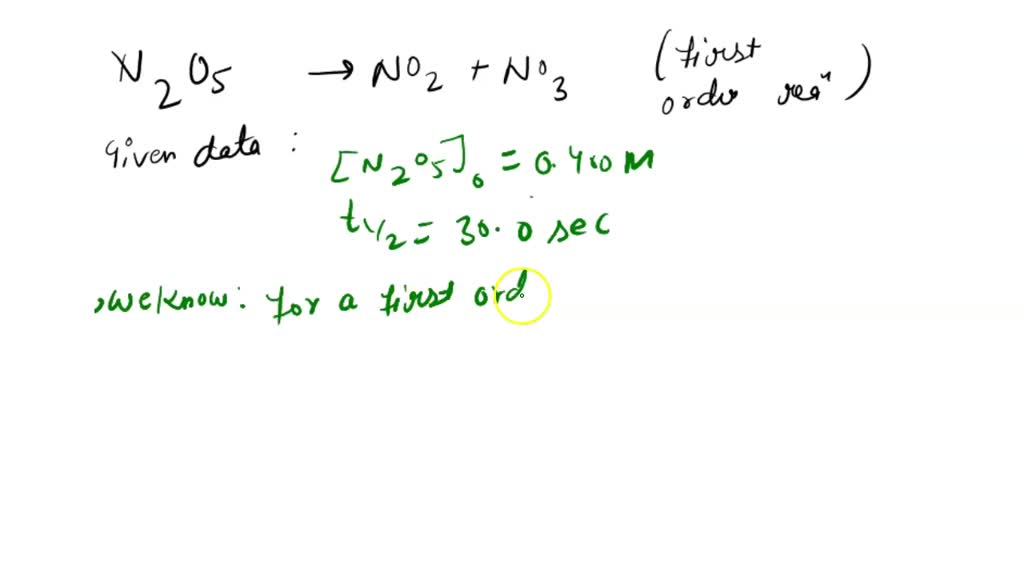 N₂O₅ → NO₂ + NO₃ (first order reaⁿ)
Given data :
[N₂O₅]₀ = 0.400 M
t₁/₂ = 30.0 sec
,we know: for a first ord